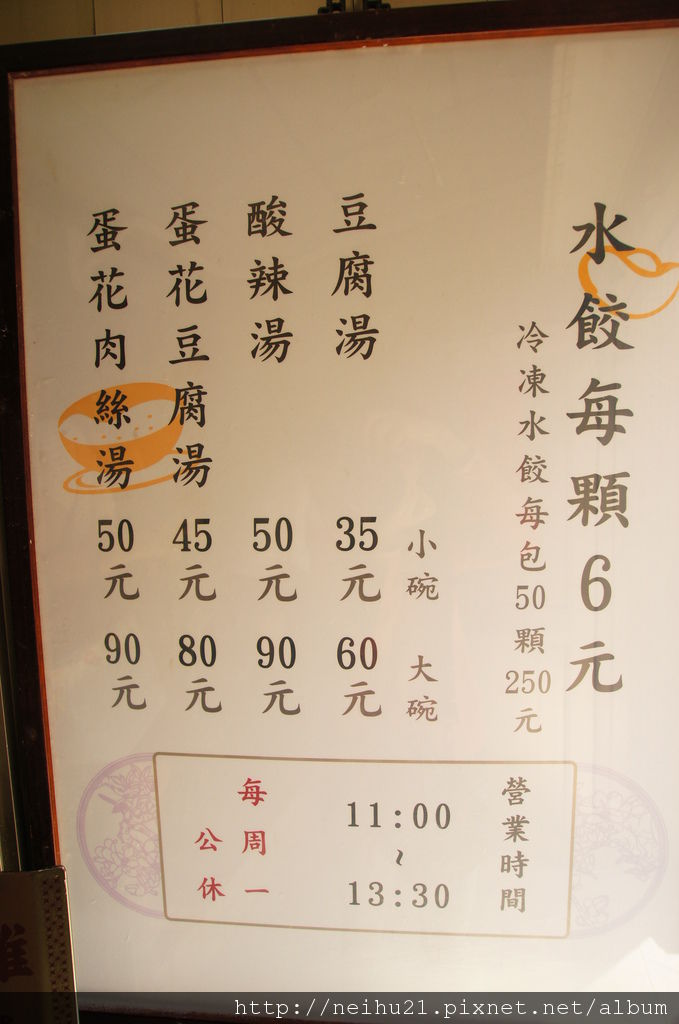 水餃每顆6元
冷凍水餃每包50顆250元
小碗
大碗
豆腐湯
35元
60元
酸辣湯
50元
90元
蛋花豆腐湯
45元
80元
蛋花肉絲湯
50元
90元
營業時間
11:00
~
13:30
每周一
公休
http://neihu21.pixnet.net/album